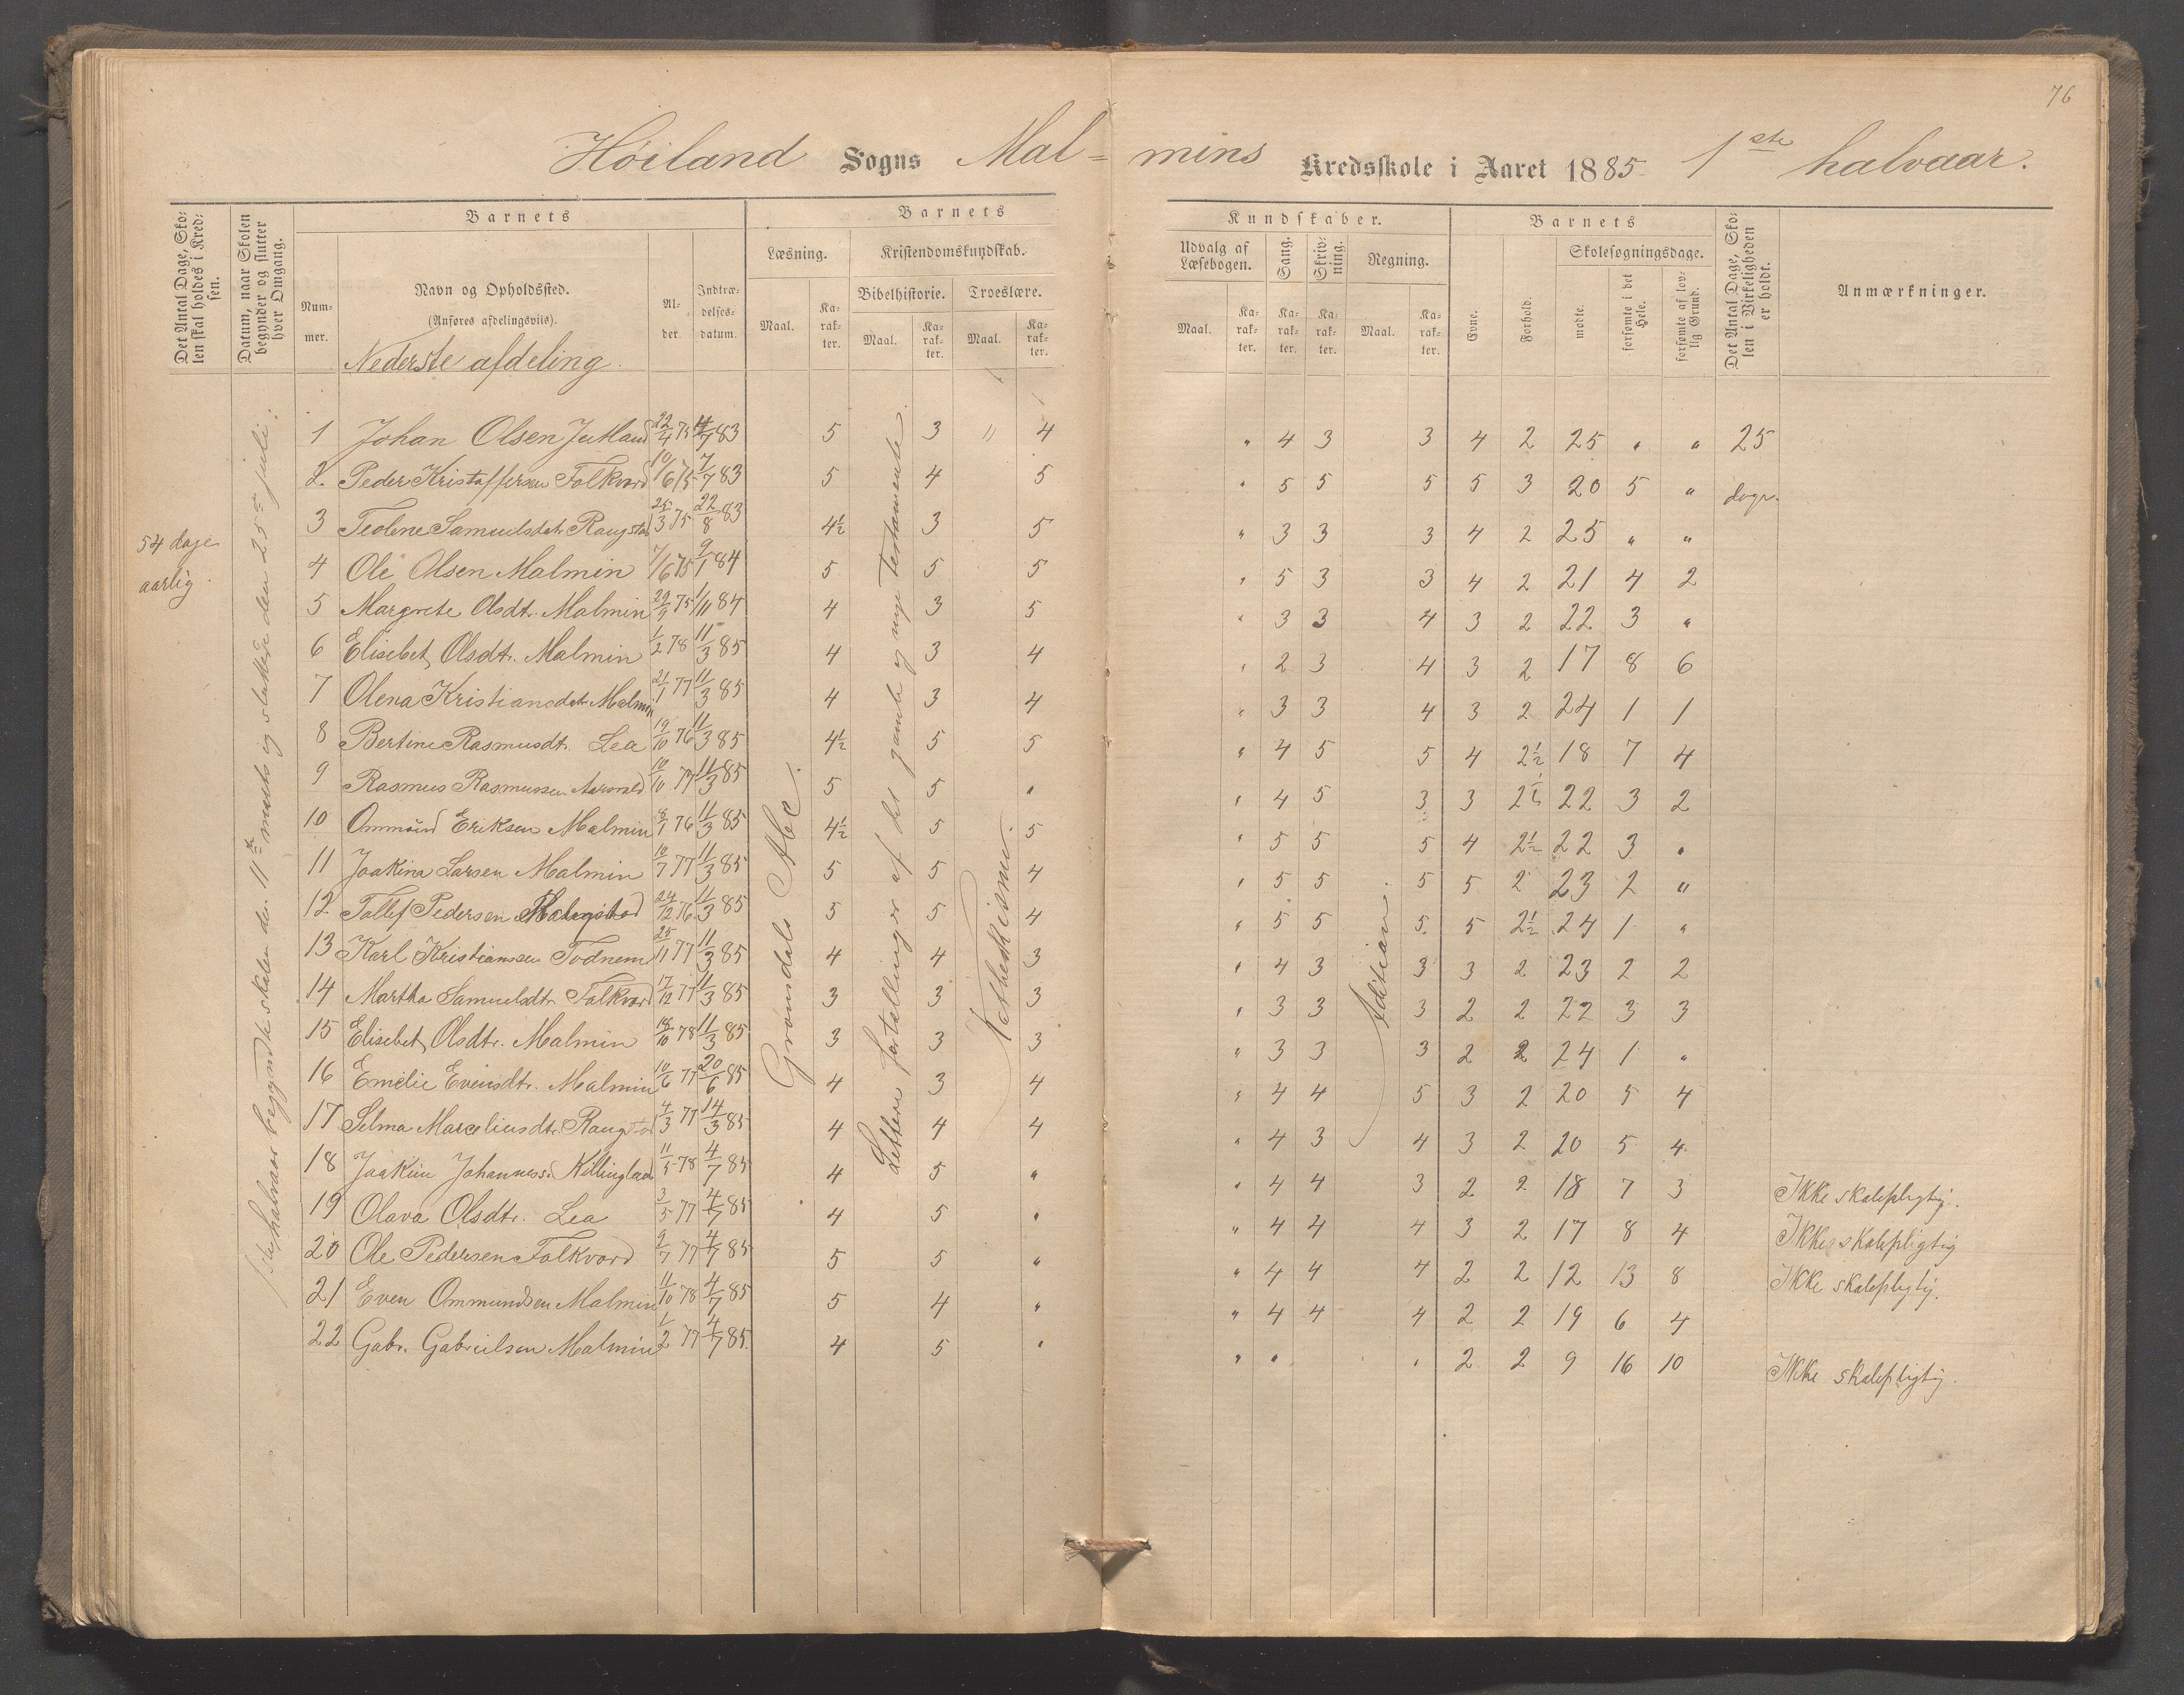 76
Höiland Sogns Mal- mins Kredsskole i Aaret 1885 1ste halvaar.
Det Antal Dage, Skolen skal holdes i Kredsen.
Datum, naar Skolen begynder og slutter hver Omgang.
Barnets
Nummer.
Navn og Opholdssted.
(Anføres afdelingsviis).
Nederste afdeling.
Alder.
Indtrædelsesdatum.
Barnets Kundskaber.
Læsning.
Kristendomskundskab.
Bibelhistorie.
Troeslære.
Maal.
Karakter.
Maal.
Karakter.
Maal.
Karakter.
Udvalg af Læsebogen.
Sang.
Skrivning.
Regning.
Maal.
Karakter.
Karakter.
Karakter.
Maal.
Karakter.
Barnets
Evne.
Forhold.
Skolesøgningsdage.
mødte.
forsømte i det Hele.
forsømte af lovlig Grund.
Det Antal Dage, Skolen i Virkeligheden er holdt.
Anmærkninger.
54 dage
aarlig.
halvaar begyndte skolen den 11te marts og sluttede den 25de juli.
Grøndals Abc.
Lettere fortellinger af det gamle og nye Testamente
Kathekismi.
Adition.
1 Johan Olsen Jutland 22/4 75 4/7 83 5 3 " 4 " 4 3 3 4 2 25 " " 25
2. Peder Kristoffersen Folkvord 10/6 75 7/7 83 5 4 5 " 5 5 5 5 3 20 5 " dage.
3 Teoline Samuelsdt. Raugstad 25/3 75 22/8 83 4½ 3 5 " 3 3 3 4 2 25 " "
4 Ole Olsen Malmin 7/6 75 9/1 84 5 5 5 " 5 3 3 4 2 21 4 2
5 Margrete Olsdt. Malmin 29/9 75 1/11 84 4 3 5 " 3 3 4 3 2 22 3 "
6 Elisebet Olsdt. Malmin 1/2 78 11/3 85 4 3 4 " 2 3 4 3 2 17 8 6
7 Olena Kristiansdt. Malmin 21/1 77 11/3 85 4 3 4 " 3 3 4 3 2 24 1 1
8 Bertine Rasmusdt. Lea 19/10 76 11/3 85 4½ 5 5 " 4 5 5 4 2½ 18 7 4
9 Rasmus Rasmussen 10/10 77 11/3 85 5 5 " " 4 5 3 3 2½ 22 3 2
10 Ommund Eriksen Malmin 8/1 76 11/3 85 4½ 5 5 " 5 5 5 4 2½ 22 3 "
11 Joakina Larsen Malmin 10/7 77 11/3 85 5 5 4 " 5 5 5 5 2 23 2 "
12 Tollef Pedersen 24/12 76 11/3 85 5 5 4 " 5 5 5 5 2½ 24 1 "
13 Karl Kristiansen Todnem 25/11 77 11/3 85 4 4 3 " 4 3 3 3 2 23 2 2
14 Martha Samuelsdtr. Folkvord 17/12 77 11/3 85 3 3 3 " 3 3 3 2 2 22 3 3
15 Elisebet Olsdtr. Malmin 18/10 78 11/3 85 3 3 3 " 3 3 3 2 2 24 1 "
16 Emelie Evensdtr. Malmin 10/6 77 20/6 85 4 3 4 " 4 4 5 3 2 20 5 4
17 Selma Marceliusdtr. Raugstad 4/3 77 14/3 85 4 4 4 " 4 3 4 3 2 20 5 4
18 Joakim Johanness. Killingland 11/5 78 4/7 85 4 5 " " 4 4 3 2 2 18 7 3 Ikke skolepligtig.
19 Olava Olsdtr. Lea 3/5 77 4/7 85 4 5 " " 4 4 4 3 2 17 8 4 Ikke skolepligtig
20 Ole Pedersen Folkvord 9/7 77 4/7 85 5 5 " " 4 4 4 2 2 12 13 8 Ikke skolepligtig.
21 Even Ommundsen Malmin 11/10 78 4/7 85 5 4 " " 4 4 4 2 2 19 6 4
22 Gabr. Gabrielsen Malmin 1/2 77 4/7 85 4 5 " " " " 2 2 9 16 10 Ikke skolepligtig.